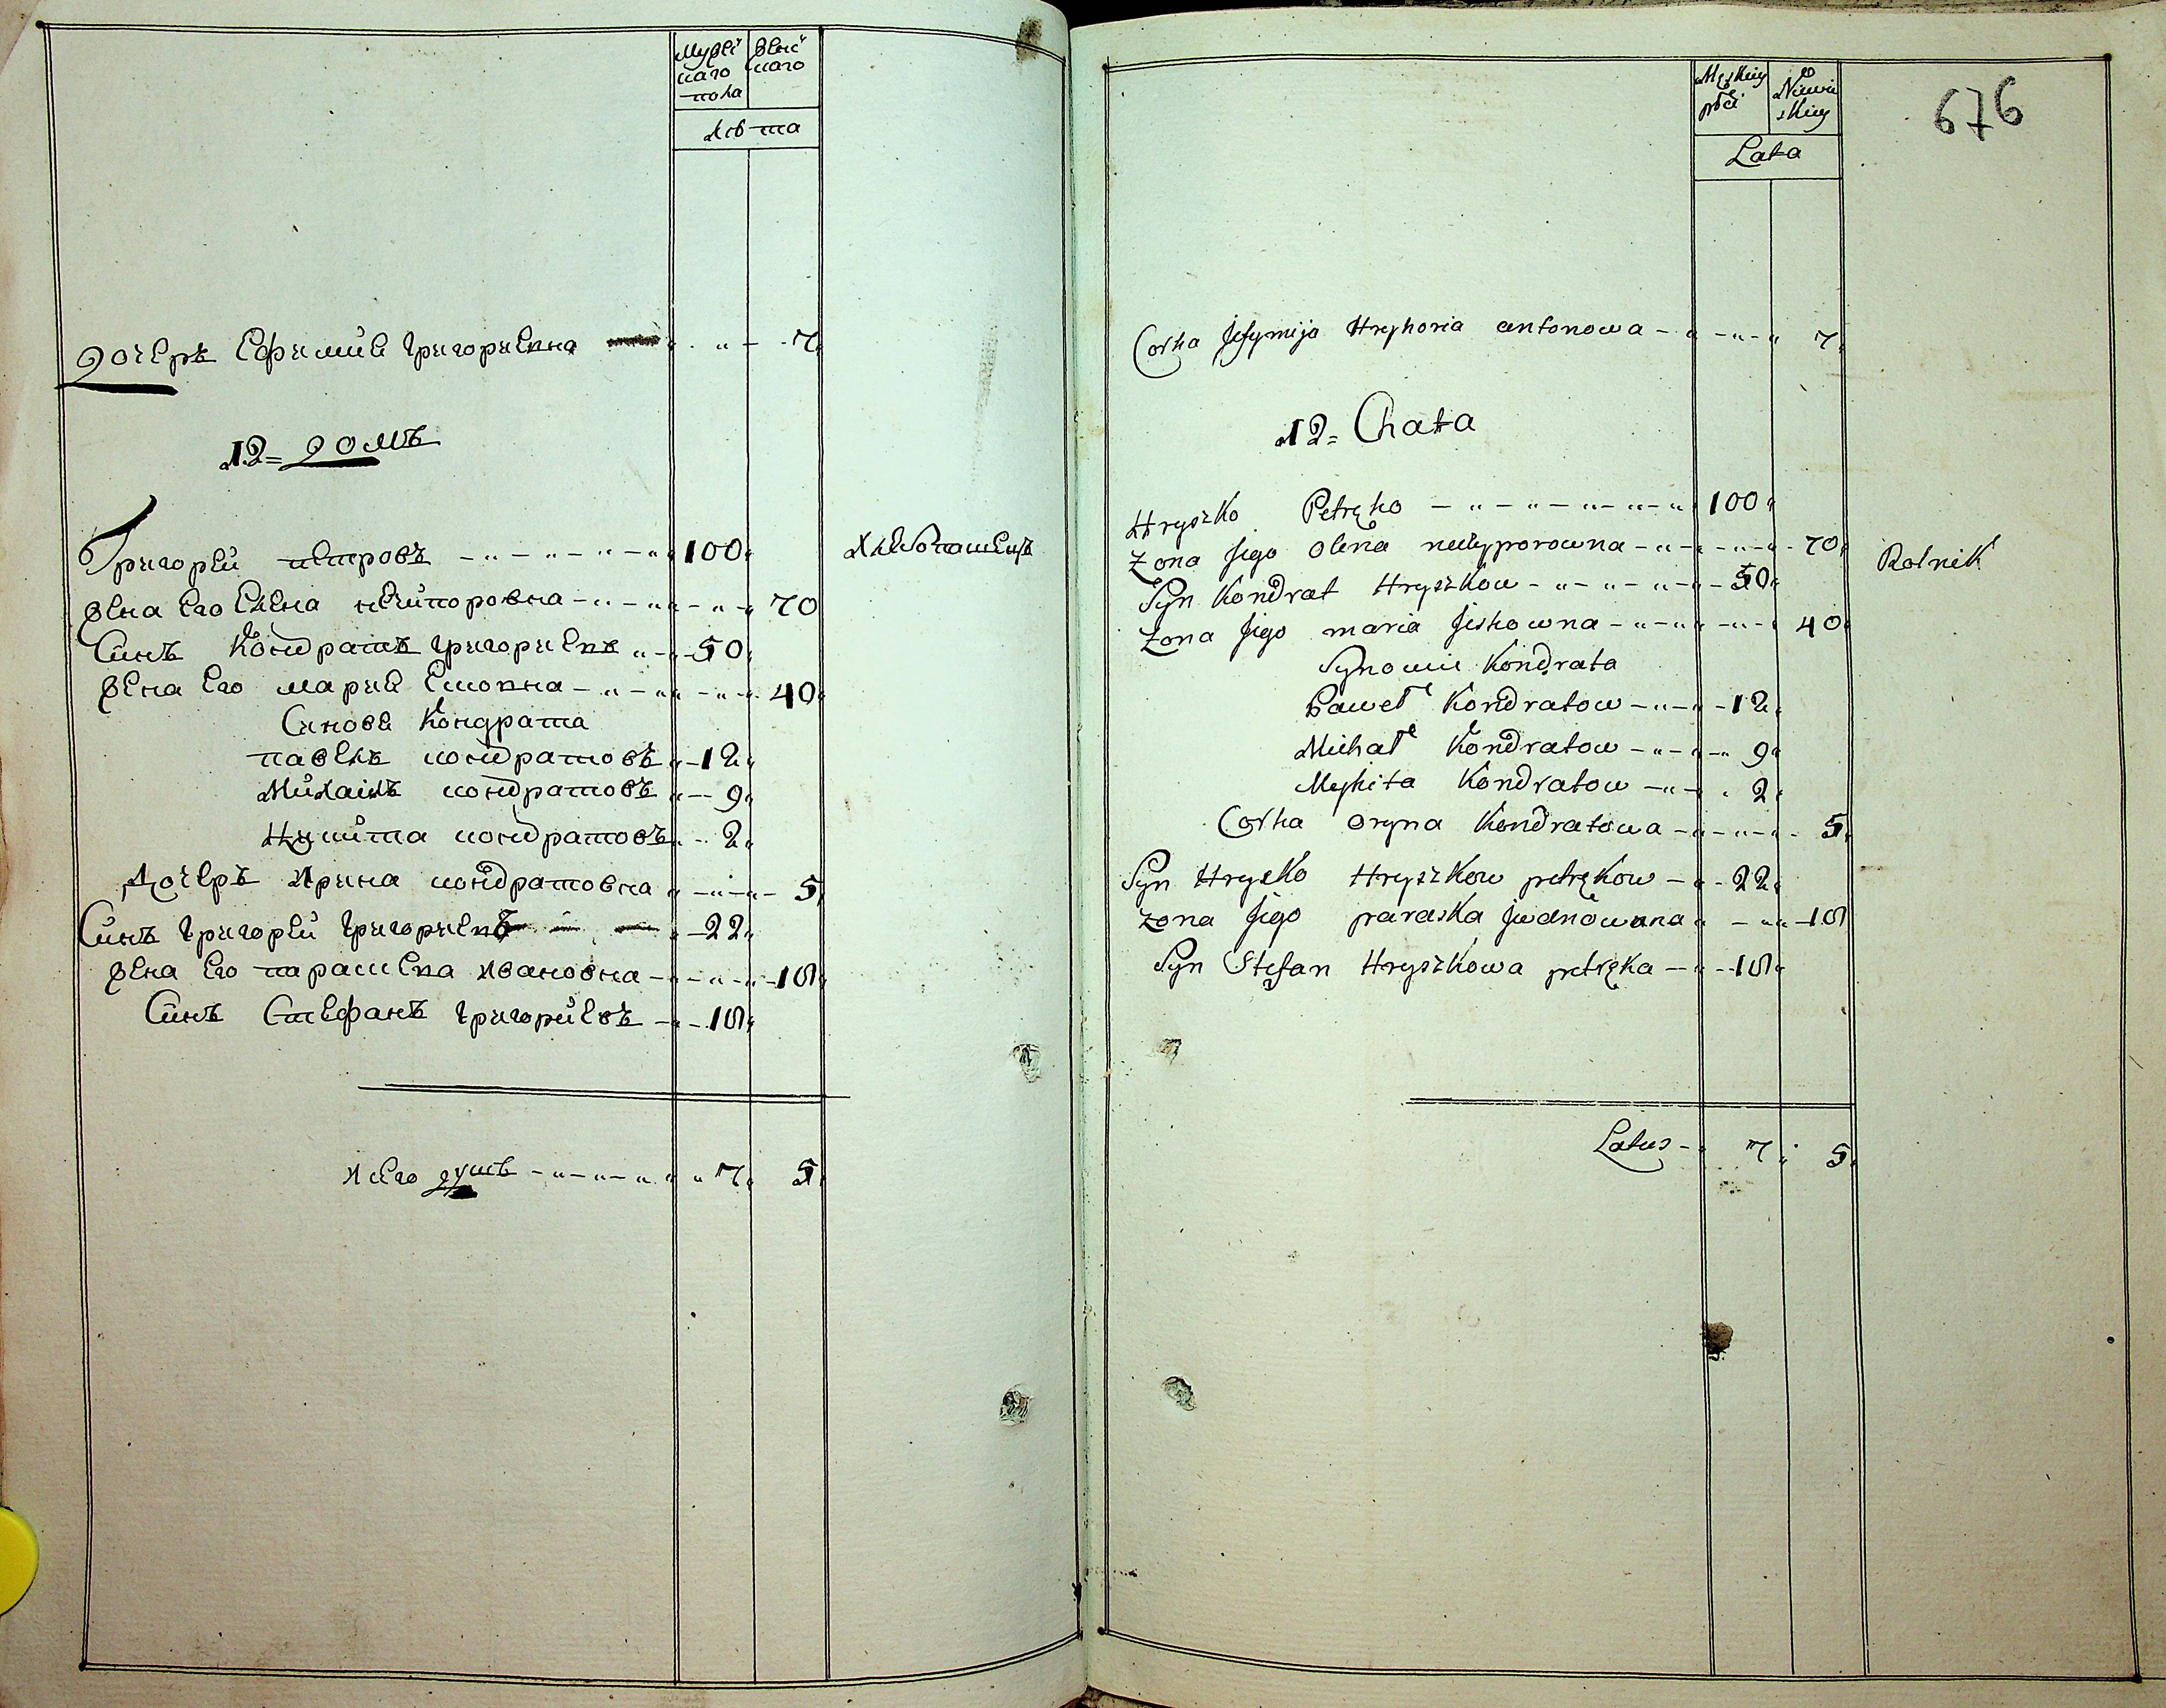 Мужес
каго
пола
Женс
каго
Лѣта
дочеръ Ефимия Григориевна 7
12= домъ
Григорей Петровъ 100
Жена Его Елена Нечипоровна 70
Синъ Кондратъ Григориевъ 50
Жена Его Мария Есковна 40
Синовя Кондрата
Павелъ Кондратовъ 12
Михаилъ Кондратовъ 9
Никита Кондратовъ 2
Дочеръ Ирина Кондратовна 5
Синъ Григорей Григориевъ 22
Жена Его Параскева Ивановна 18
Синъ Стефанъ Григориевъ 18
Хлебопашецъ
Всего душъ 7 5
Męskiey
płci
Niewie
skiey
Lata
676
Corka Jefymija Hryhoria antonowa 7
12= Chata
Hryszko Petręko 100
Zona Jego Olena neczyporowna 70
Syn Kondrat Hryszkow 50
Zona Jego maria Jeskowna 40
Synowie Kondrata
Paweł Kondratow 12
Michał Kondratow 9
Mykita Kondratow 2
Corka oryna Kondratowa 5
Syn Hryćko Hryszkow petrękow 22
zona Jego paraska Jwanowna 18
Syn Stefan Hryszkowa petręka 18
Rolnik
Latus 7 5